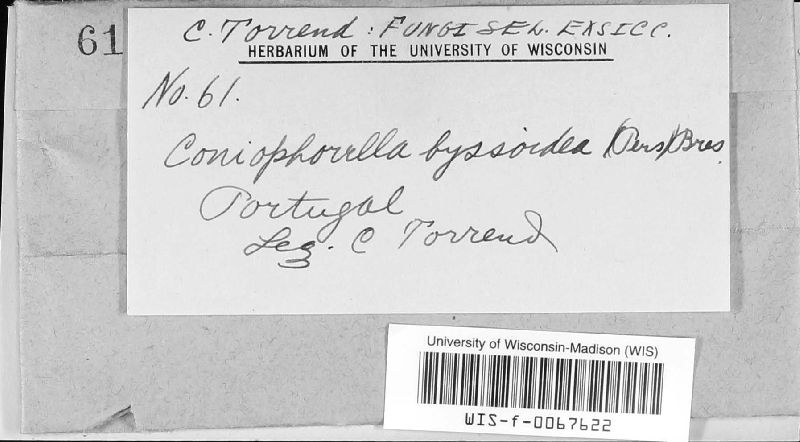 61
C. Torrend : FUNGI SEL. EXSICC.
HERBARIUM OF THE UNIVERSITY OF WISCONSIN
No. 61.
Coniophorella byssoidea (Pers) Bres.
Portugal
Leg. C Torrend
University of Wisconsin-Madison (WIS)
WIS-f-0067622